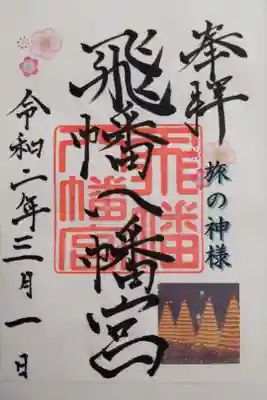 奉拝
旅の神様
飛幡八幡宮
飛幡
八幡宮
令和二年三月一日